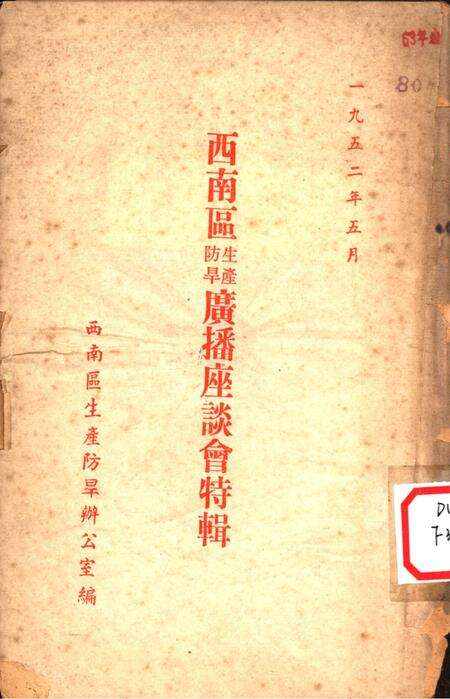 一九五二年五月
西南區生產防旱廣播座談會特輯
西南區生產防旱辦公室編
63年
80
DU